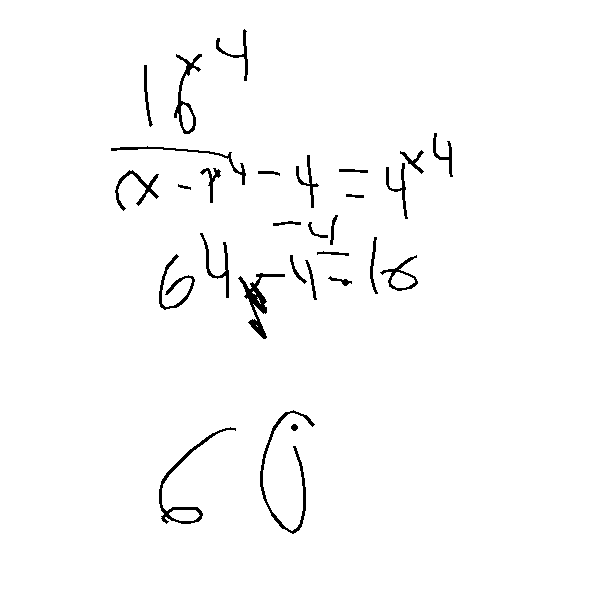 16^x 4
x - 1^4 - 4 = 4^x 4
-4
64 - 4 = 16
60